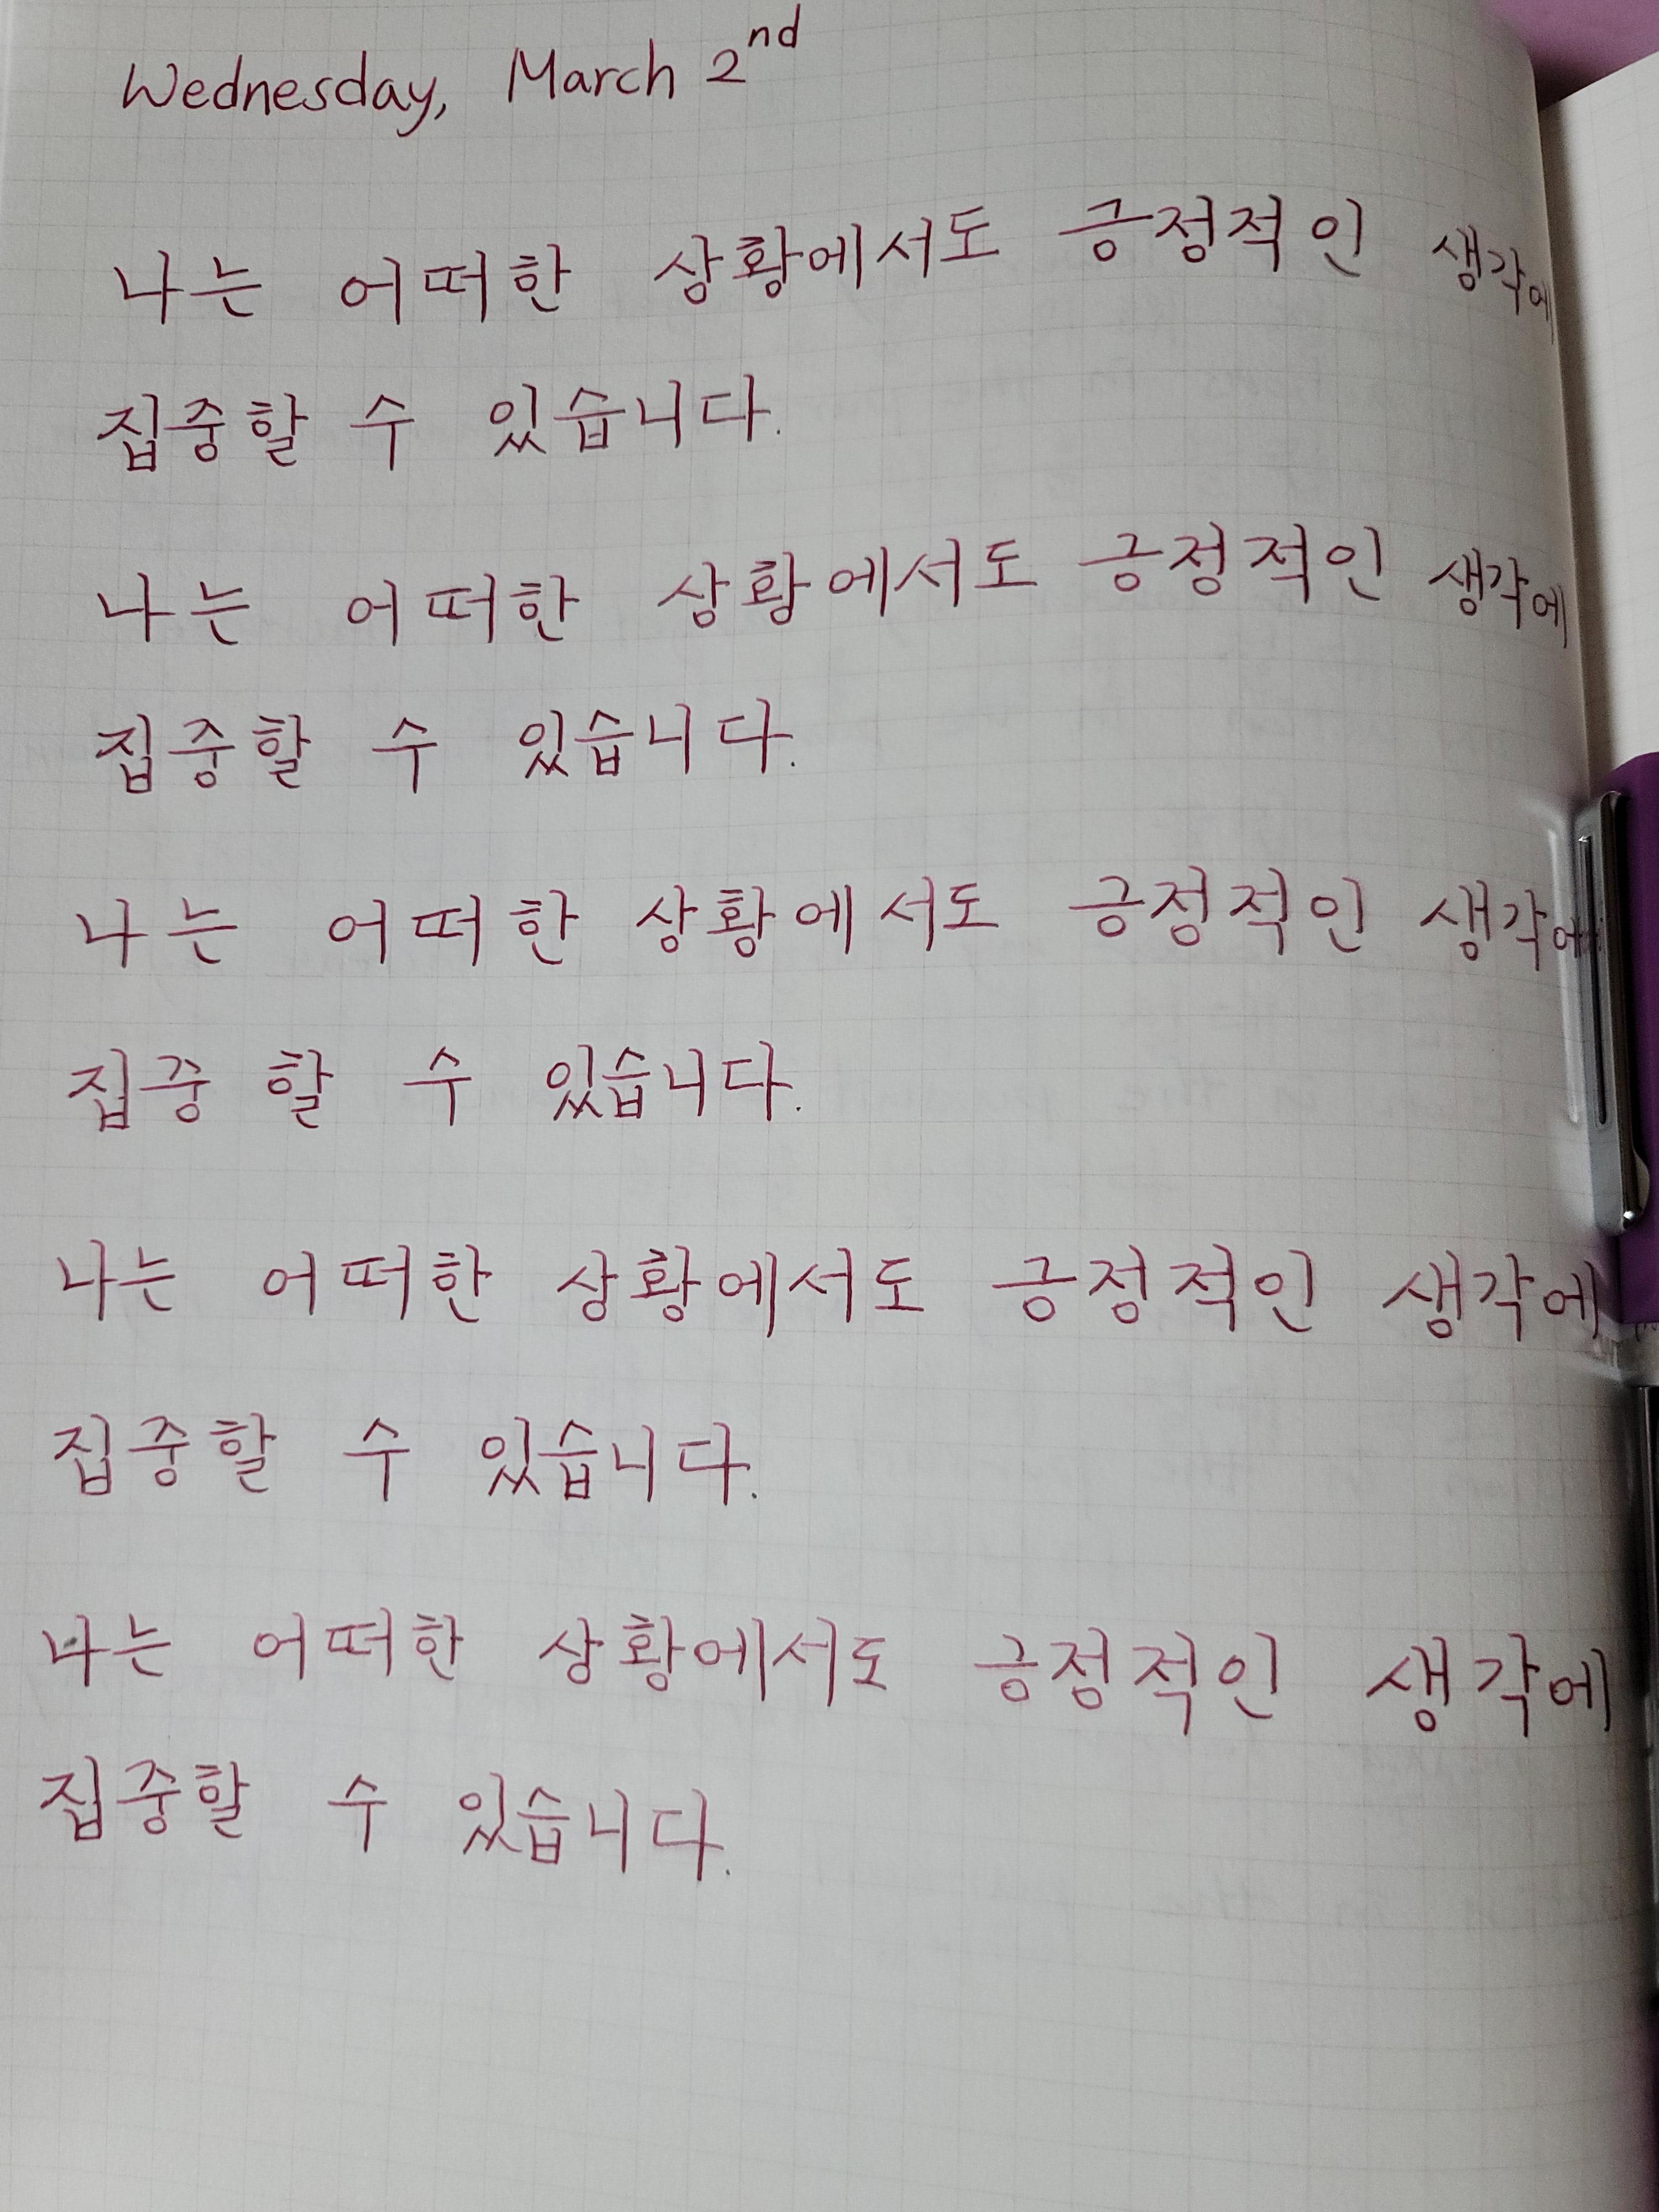 Wednesday, March 2nd
나는 어떠한 상황에서도 긍정적인 생각에
집중할 수 있습니다.
나는 어떠한 상황에서도 긍정적인 생각에
집중할 수 있습니다.
나는 어떠한 상황에서도 긍정적인 생각에
집중할 수 있습니다.
나는 어떠한 상황에서도 긍정적인 생각에
집중할 수 있습니다.
나는 어떠한 상황에서도 긍정적인 생각에
집중할 수 있습니다.